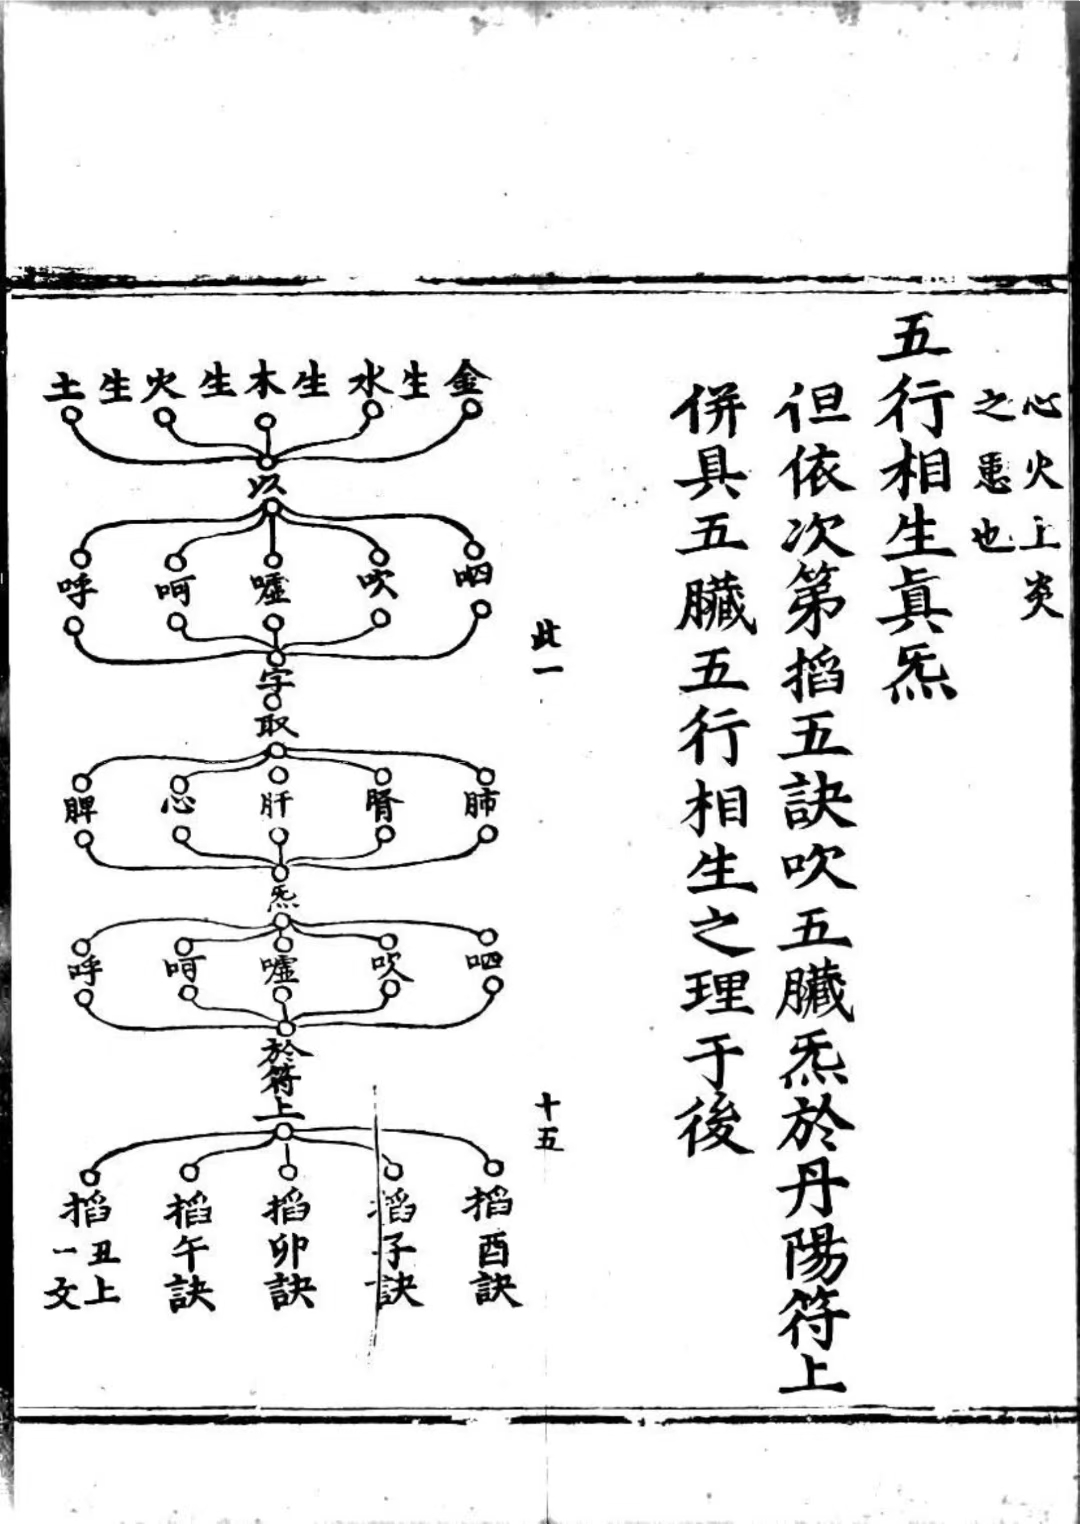 心火上炎
之患也
五行相生眞炁
但依次第搯五訣吹五臟炁於丹陽符上
併具五臟五行相生之理于後
此一
十五
金生水生木生火生土
以
呬吹噓呵呼
字
取
肺腎肝心脾
炁
呬吹噓呵呼
於符上
搯酉訣
搯子訣
搯卯訣
搯午訣
搯丑上一文